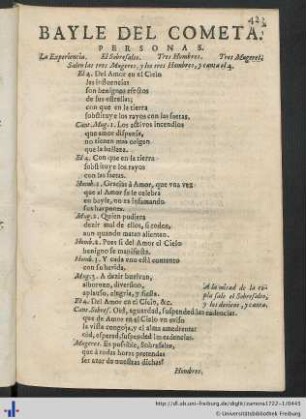 BAYLE DEL COMETA.
PERSONAS.
La Experiencia. El Sobresalto. Tres Hombres. Tres Mugeres.
Salen las tres Mugeres, y los tres Hombres, y canta el 4.
El 4. Del Amor en el Cielo
las influencias
son benignos efectos
de sus estrellas;
con que en la tierra
substituye los rayos con las saetas.
Cant. Mug. 1. Los activos incendios
que amor dispensa,
no tienen mas origen
que la belleza.
El 4. Con que en la tierra
substituye los rayos
con las saetas.
Homb. 1. Gracias à Amor, que vna vez
que al Amor se le celebra
en bayle, no es infamando
sus harpones.
Mug. 2. Quien pudiera
dezir mal de ellos, si todos,
aun quando matan alientan.
Homb. 2. Pues si del Amor el Cielo
benigno se manifiesta.
Homb. 3. Y cada vno està contento
con su herida.
Mug. 3. A dezir buelvan,
alborozo, diversion,
aplauso, alegria, y fiesta.
El 4. Del Amor en el Cielo, &c.
A la mitad de la copla sale el Sobresalto,
y los detiene, y canta.
Cant. Sobres. Oid, aguardad, suspended las cadencias.
que de Amor en el Cielo
la vista congoja, y el alma amedrenta:
oid, esperad, suspended las cadencias.
Mugeres. Es possible, Sobresalto,
que à todas horas pretendas
ser azar de nuestras dichas?
Hombres.
http://dl.ub.uni-freiburg.de/diglit/zamora1722-1/0443
© Universitätsbibliothek Freiburg